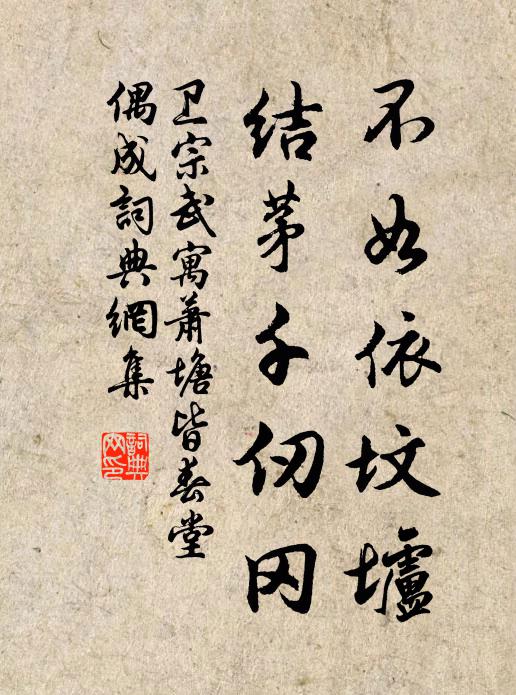 不如依坟壚
结茅千仞冈
卫宗武寓萧塘皆春堂
偶成詞典網集
詞典网印